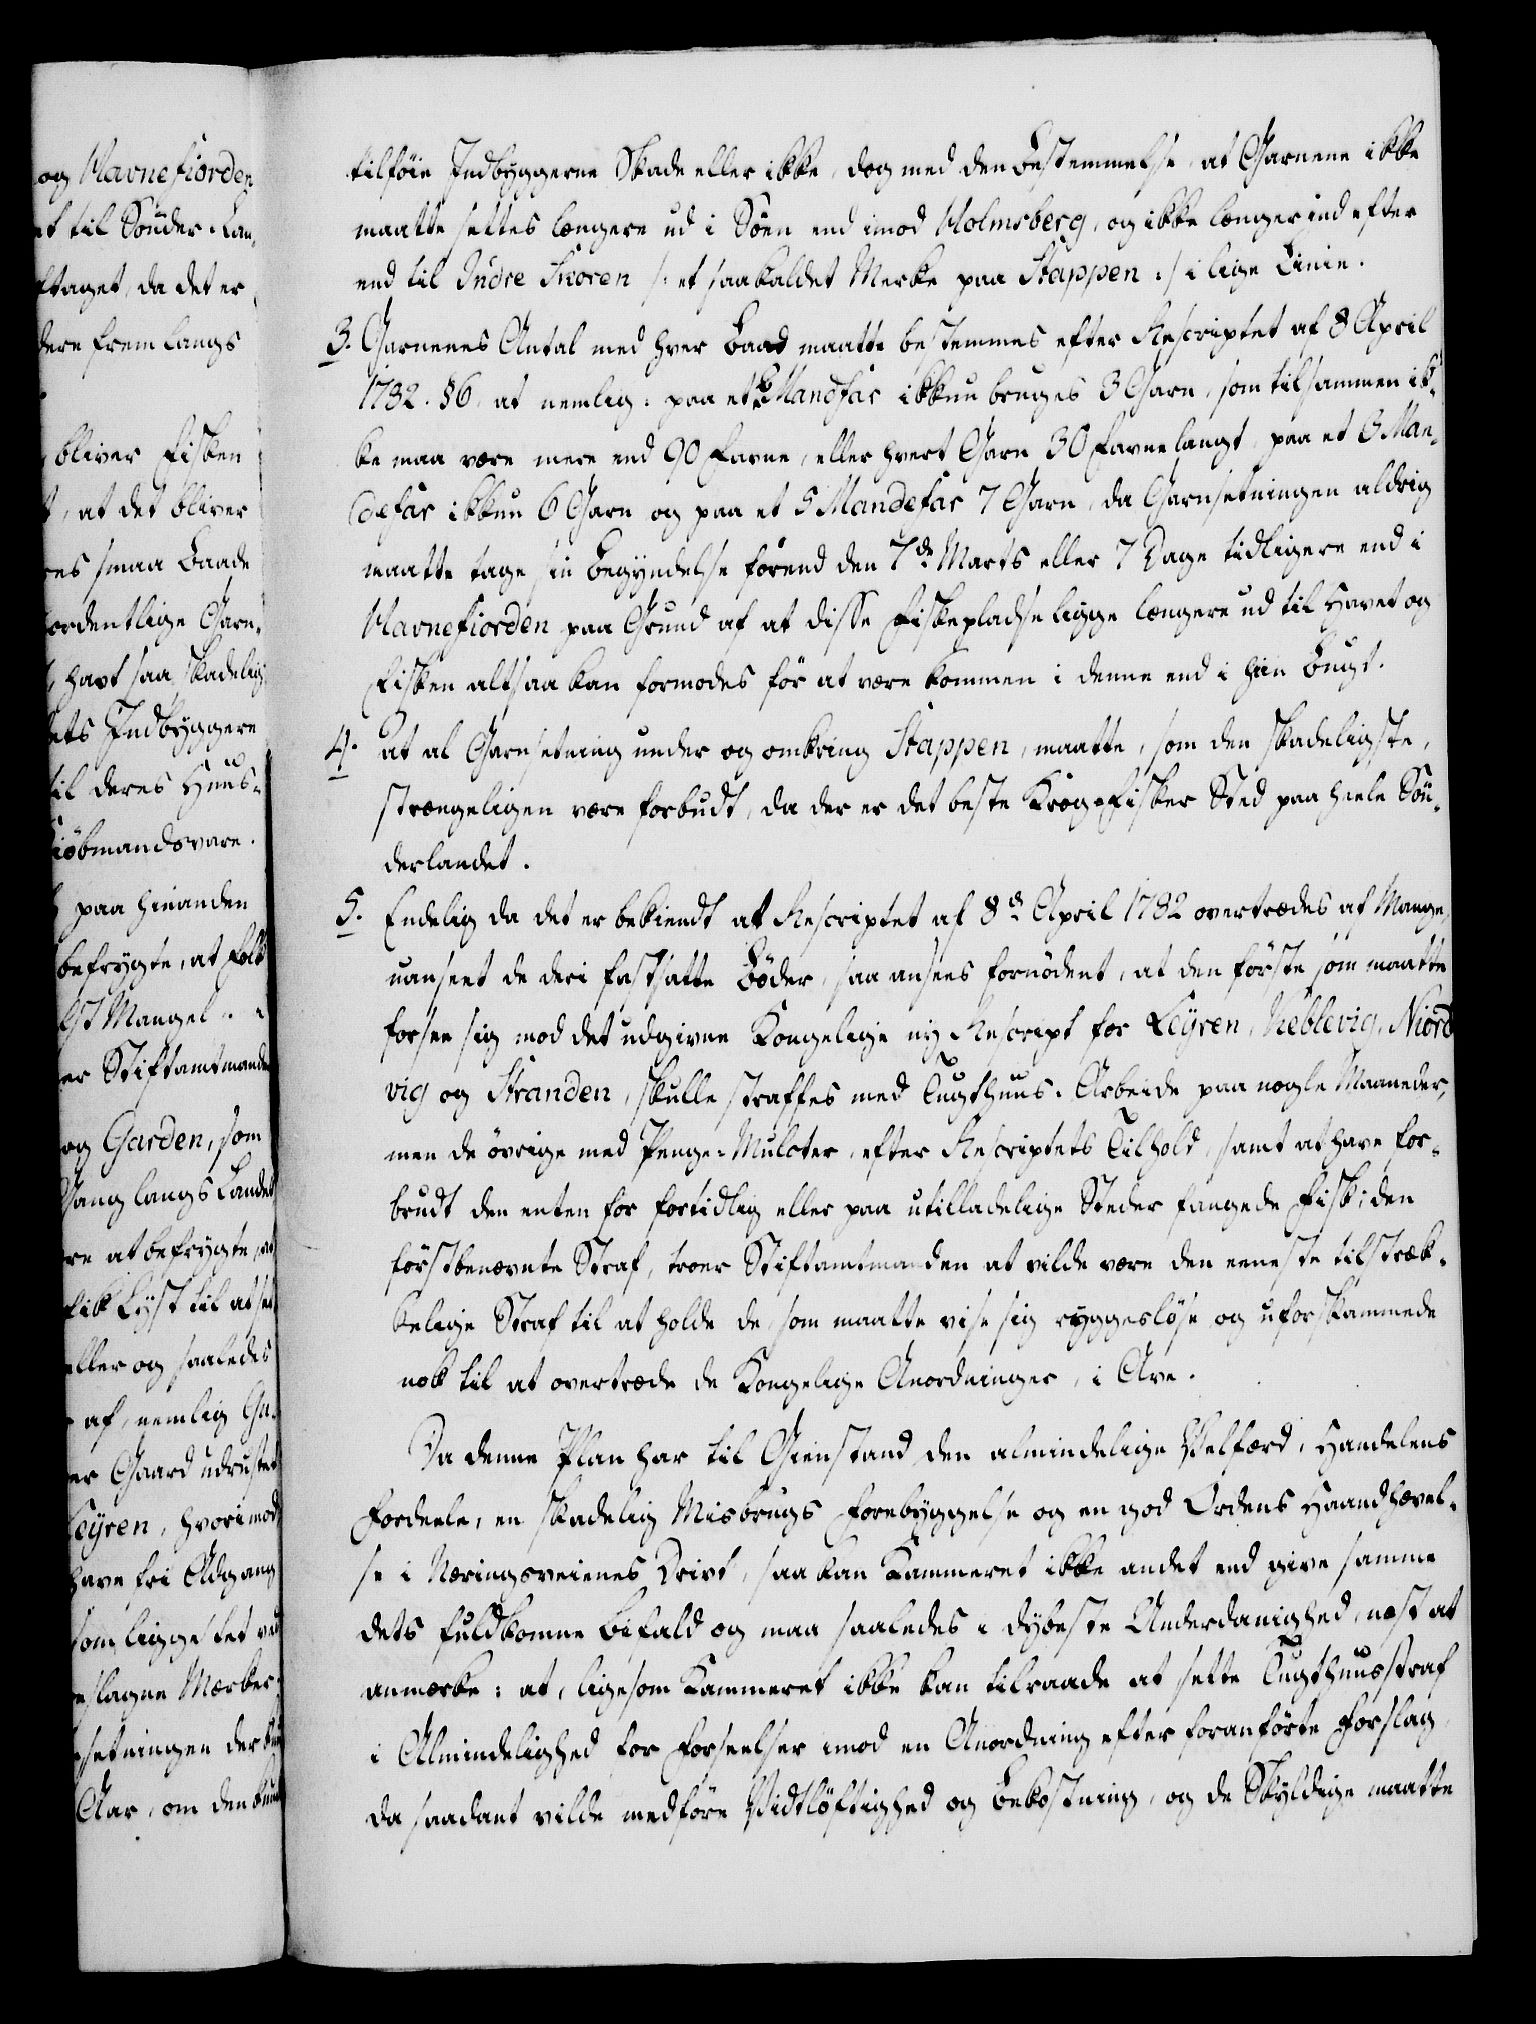 og Havnefiorden
til Sønder-Lan-
ftaget, da det er
dere frem langs
bliver Fisken
, at det bliver
smaa Baade
ordentlige Garn-
havt saa skadelig
ets Indbyggere
til deres Huus-
kiöbmandsvare.
paa hinanden
befrygte, at Folk
Mangel
er Stiftamtmanden
og Garden, som
Gang langs Landet
re at befrygte, at
fik Lyst til at
eller og saaledes
af, nemlig
er Gaard udrustet
Leyren, hvorimod
have fri Adgang
som ligge tet ved
eslagne Mærker
setningen der
Aar, om den kunde
tilföie Indbyggerne Skade eller ikke, dog med den Bestemmelse, at Garnene ikke
maatte settes længere ud i Söen end imod Holmsberg, og ikke længer ind efter
end til Indre Skoren /: et saakaldet Merke paa Stappen :/ i lige Linie.
3. Garnenes Antal med hver Baad maatte bestemmes efter Rescriptet af 8 April
1782. §6, at nemlig: paa et 2 Mandfar ikkun bruges 3 Garn, som tilsammen ik-
ke maa være mere end 90 Favne, eller hvert Garn 30 Favne langt, paa et 6 Man-
defar ikkun 6 Garn og paa et 5 Mandefar 7 Garn, da Garnsetningen aldrig
maatte tage sin Begyndelse förend den 7de Marts eller 7 Dage tidligere end i
Havnefiorden paa Grund af at disse Fiskepladse ligge længere ud til Havet og
Fisken altsaa kan formodes för at være kommen i denne end i hiin Bugt.
4. at al Garnsetning under og omkring Stappen, maatte, som den skadeligste,
strængeligen være forbudt, da der er det beste Krog-Fisker Sted paa heele Sön-
derlandet.
5. Endelig da det er bekiendt at Rescriptet af 8de April 1782 overtrædes af Mange,
uanseet de deri fastsatte Böder, saa ansees fornödent, at den förste som maatte
forsee sig mod det udgivne Kongelige nÿ Rescript for Leyren, Keblevig, Niord
vig og Stranden, skulle straffes med Tugthuus-Arbeide paa nogle Maaneder,
men de övrige med Penge-Mulcter, efter Rescriptets Tilhold, samt at have for-
brudt den enten for fortidlig eller paa utilladelige Steder fangede Fisk; den
förstbenævnte Straf, troer Stiftamtmanden at vilde være den eeneste tilstræk-
kelige Straf til at holde de, som maatte vise sig ryggeslöse og uforskammede
nok til at overtræde de Kongelige Anordninger, i Ave.
Da denne Plan har til Gienstand den almindelige Velfærd, Handelens
Fordeele, en skadelig Misbrugs Forebyggelse og en god Ordens Haandhævel-
se i Næringsveienes Drivt, saa kan Kammeret ikke andet end give samme
dets fuldkomne Bifald og maa saaledes i dybeste Underdanighed, næst at
anmærke: at, ligesom Kammeret ikke kan tilraade at sette Tugthuusstraf
i Almindelighed for Forseelser imod en Anordning efter foranförte Forslag,
da saadant vilde medföre Vidtlöftighed og Bekostning, og de Skyldige maatte